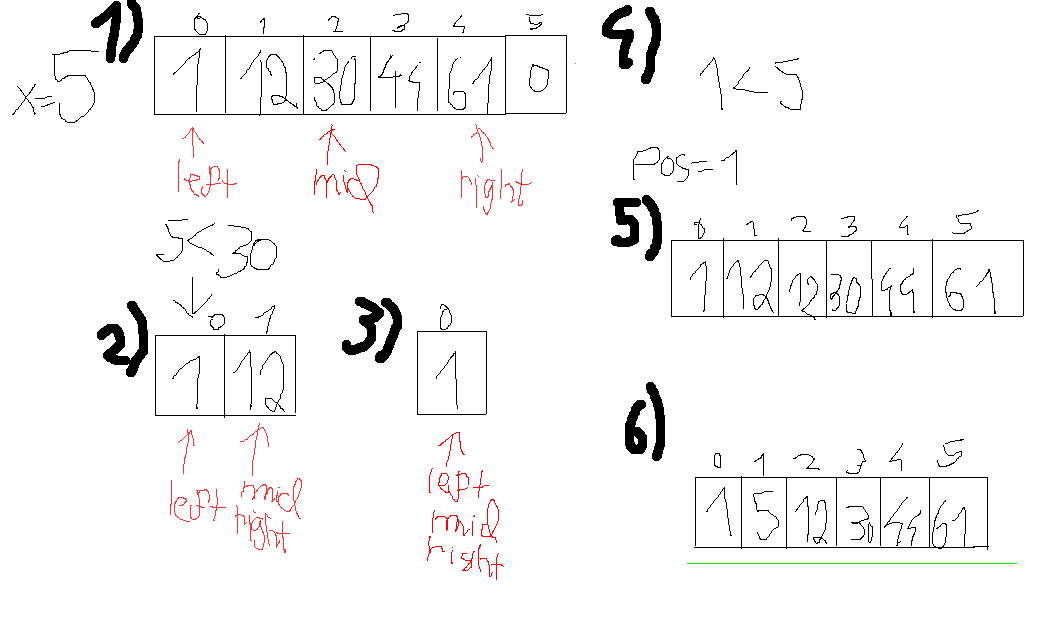 1)
x=5
0 1 2 3 4 5
1 12 30 44 61 0
left mid right
5<30
2)
0 1
1 12
left mid
right
3)
0
1
left
mid
right
4)
1<5
Pos=1
5)
0 1 2 3 4 5
1 12 12 30 44 61
6)
0 1 2 3 4 5
1 5 12 30 44 61